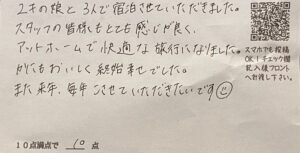 2才の娘と3人で宿泊させていただきました。
スタッフの皆様もとても感じが良く、
アットホームで快適な旅行になりました。
おいしく 終始幸せでした。
また来年、毎年こさせていただきたいです
スマホでも投稿
OK！チェック欄
記入後フロント
へお渡し下さい。
10点満点で 10 点